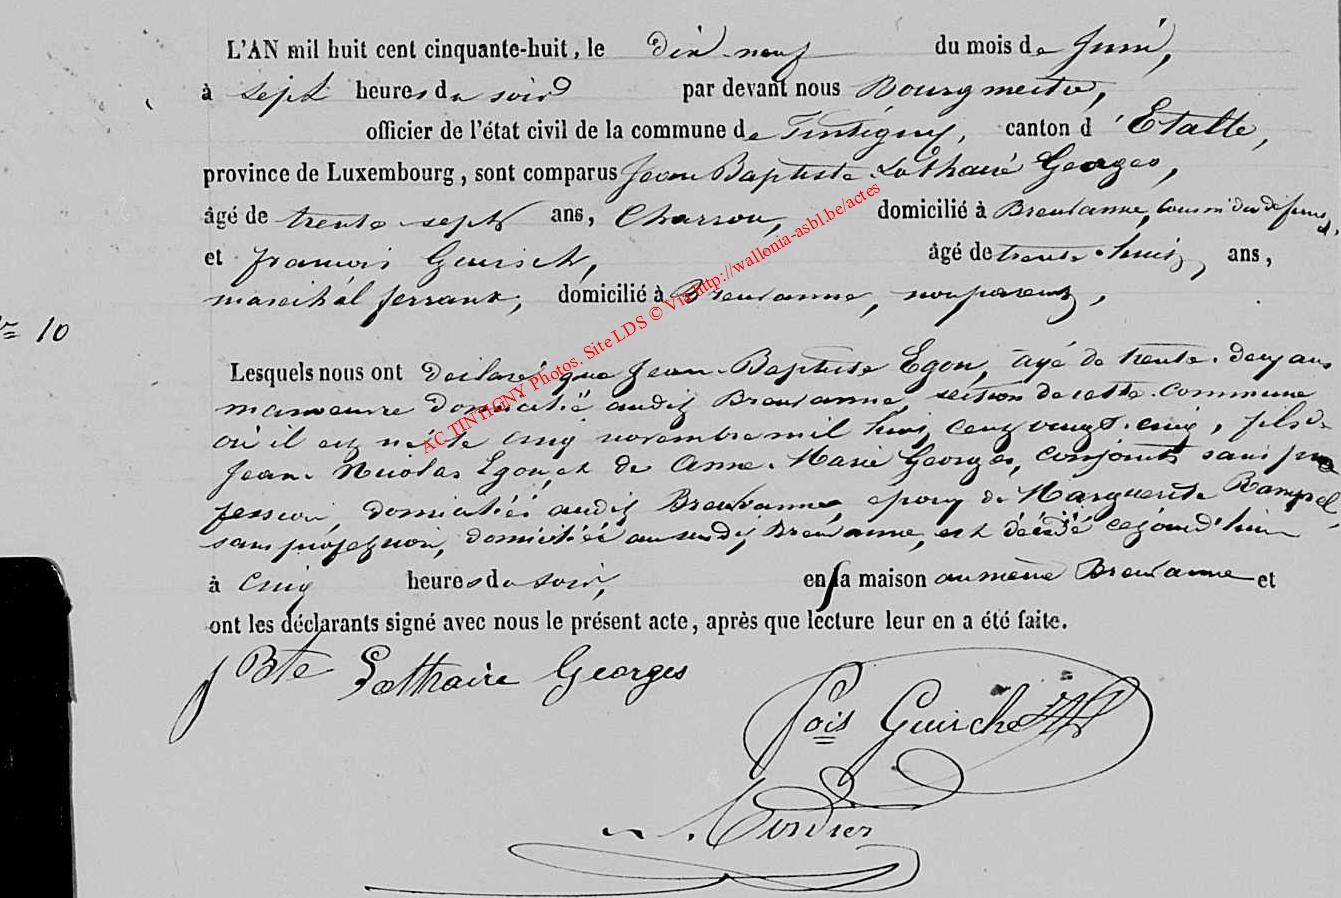 L'AN mil huit cent cinquante-huit, le dix neuf du mois de Juin,
à sept heures du soir par devant nous Bourgmestre,
officier de l'état civil de la commune de Tintigny, canton d'Etalle,
province de Luxembourg, sont comparus Jean Baptiste Lothaire Georges,
âgé de trente sept ans, Charron, domicilié à Breuvanne, cousin du défunt,
et François Guirsch, âgé de trente-huit, ans,
maréchal ferrant, domicilié à Breuvanne, non parent,
N° 10
Lesquels nous ont déclaré que Jean-Baptiste Egon, âgé de trente-deux ans
manœuvre domicilié audit Breuvanne, section de cette commune
où il est né le cinq novembre mil huit cent vingt-cinq, fils de
Jean Nicolas Egon, et de Anne-Marie Georges, conjoints sans pro
fession, domiciliés audit Breuvanne, époux de Marguerite
sans profession, domiciliée au susdit Breuvanne, est décédé cejourd'hui
à cinq heures du soir, en sa maison au même Breuvanne et
ont les déclarants signé avec nous le présent acte, après que lecture leur en a été faite.
J Bte Lothaire Georges
Fois Guirche
AC TINTIGNY Photos. Site LDS © Via http://wallonia-asbl.be/actes